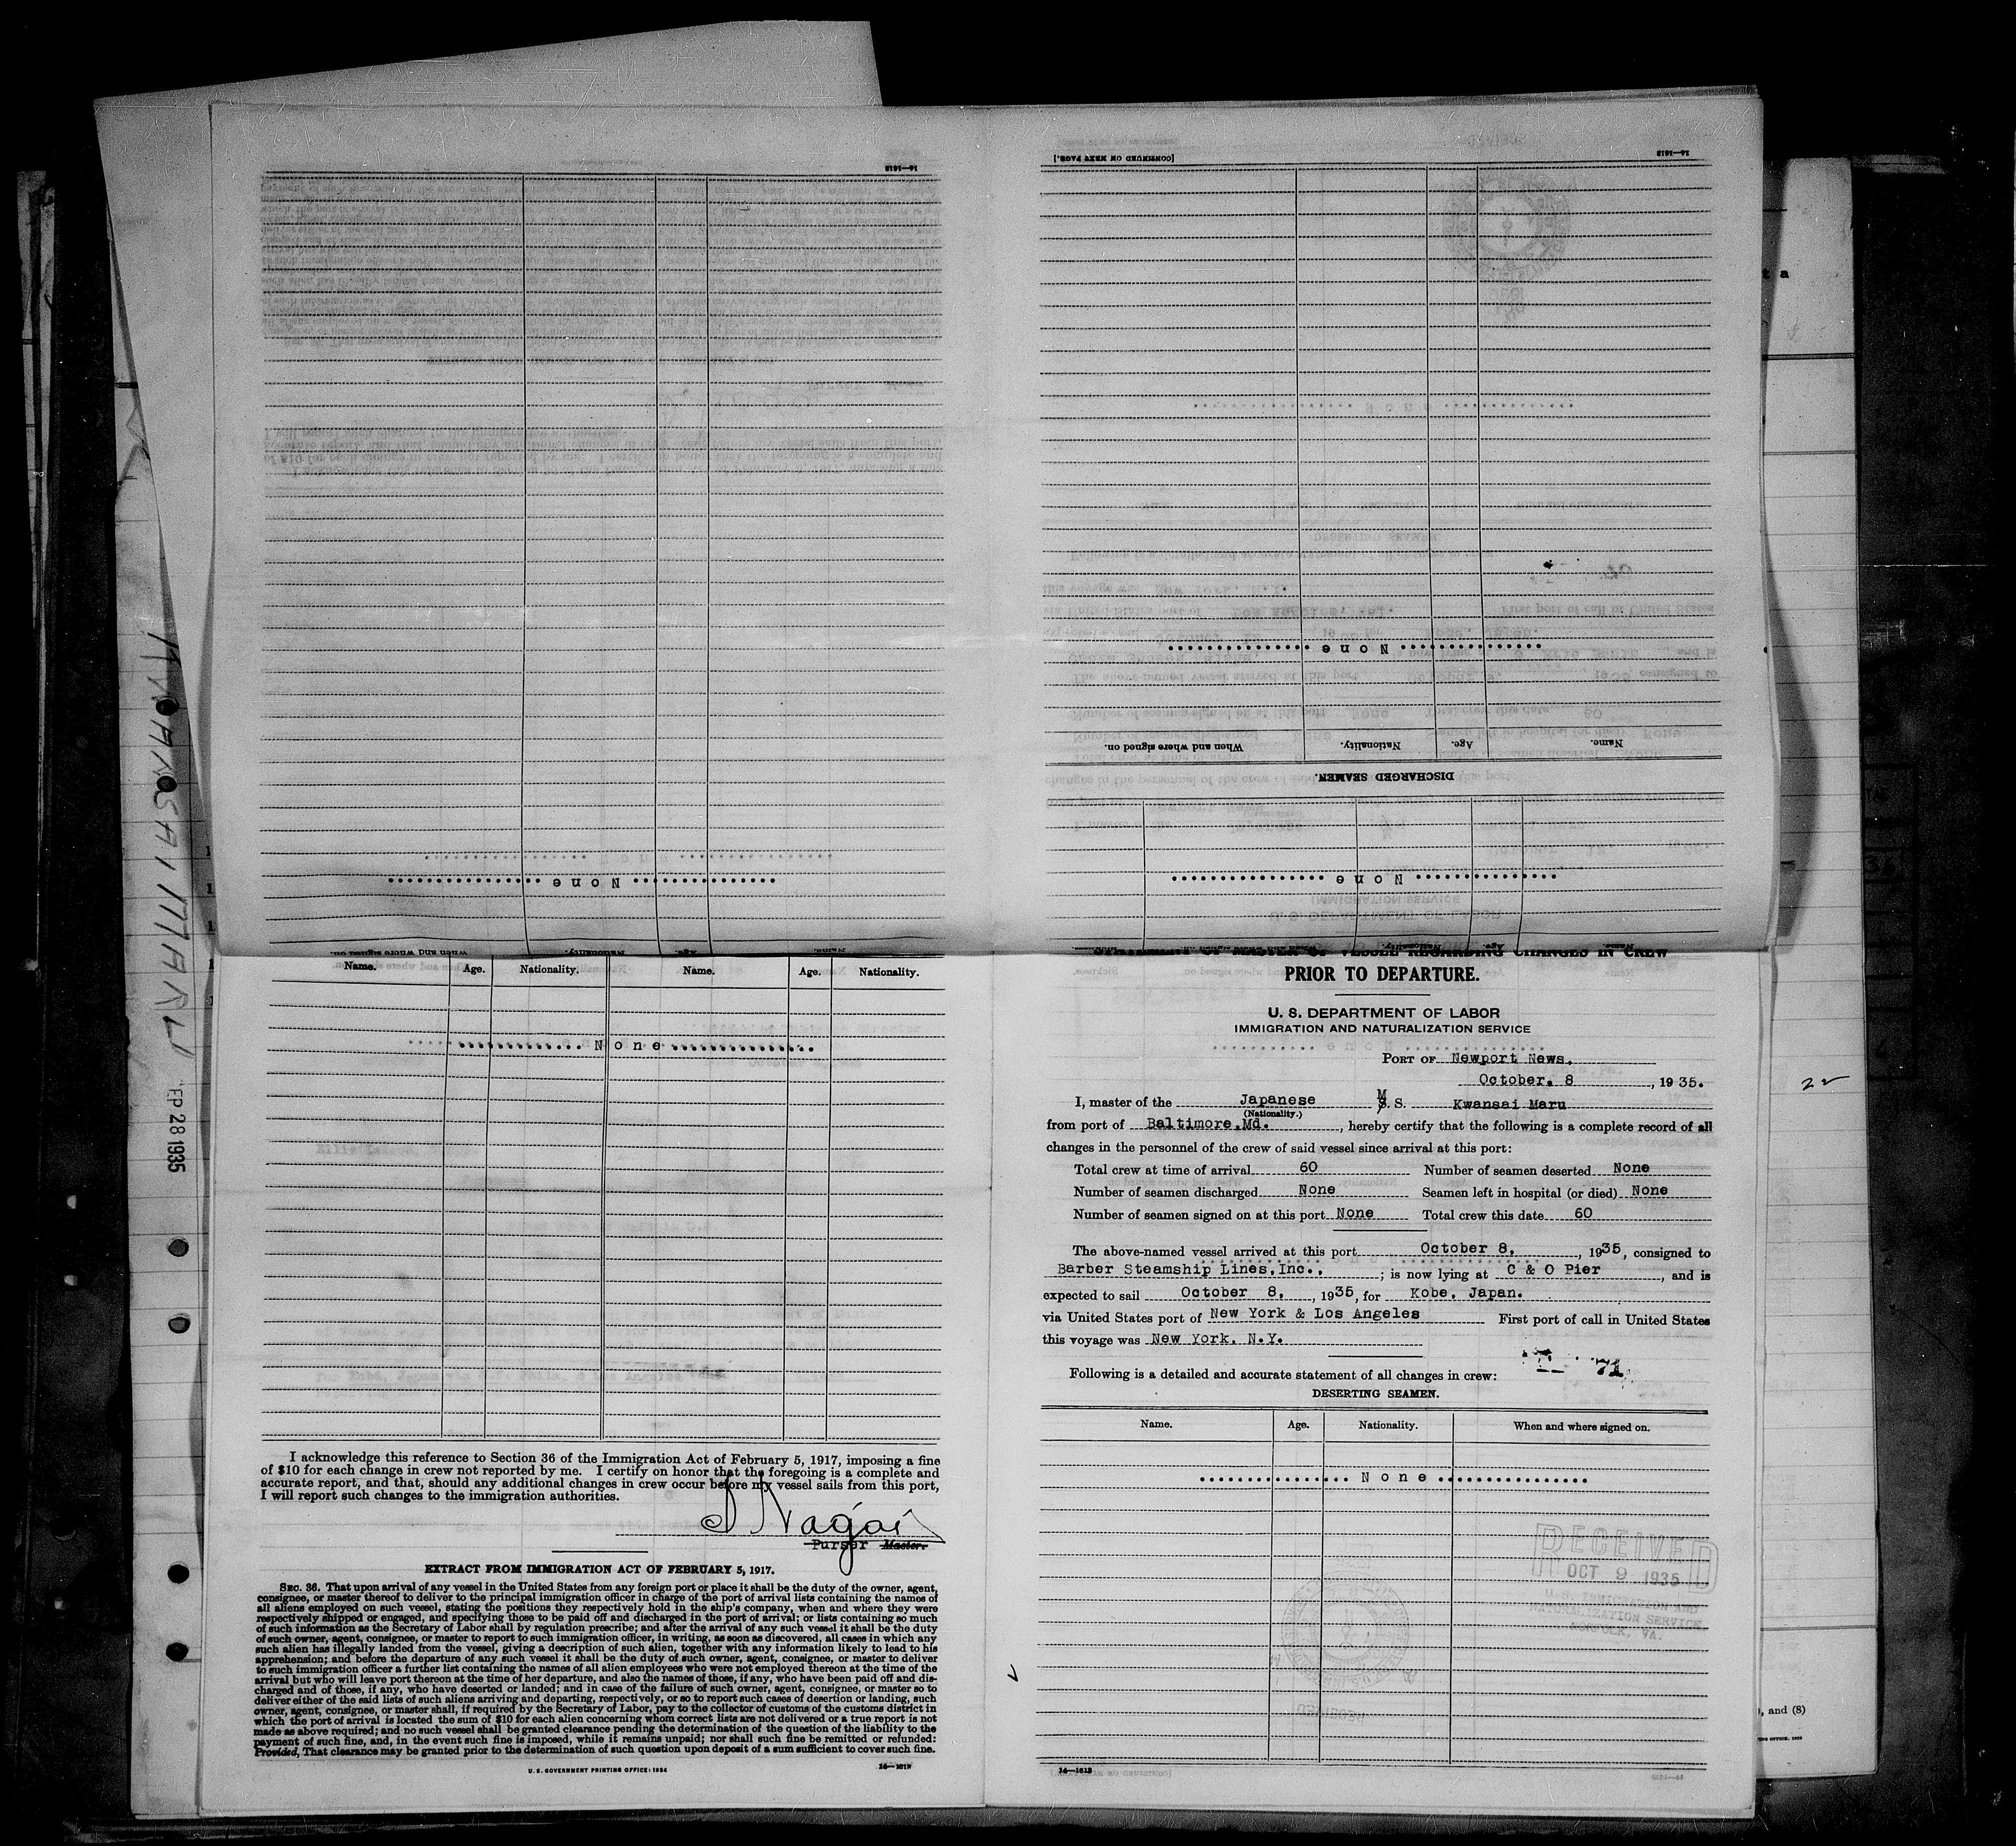 14—1613
None
When and where signed on. Nationality. Age. Name.
[CONTINUED ON NEXT PAGE.]
14—1613
None
When and where signed on. Nationality. Age. Name.
DISCHARGED SEAMEN.
None
KWANSAI MARU
EP 28 1935
Name. Age. Nationality. Name. Age. Nationality.
None
I acknowledge this reference to Section 36 of the Immigration Act of February 5, 1917, imposing a fine
of $10 for each change in crew not reported by me. I certify on honor that the foregoing is a complete and
accurate report, and that, should any additional changes in crew occur before my vessel sails from this port,
I will report such changes to the immigration authorities.
Nagai
Purser Master.
EXTRACT FROM IMMIGRATION ACT OF FEBRUARY 5, 1917.
SEC. 36. That upon arrival of any vessel in the United States from any foreign port or place it shall be the duty of the owner, agent,
consignee, or master thereof to deliver to the principal immigration officer in charge of the port of arrival lists containing the names of
all aliens employed on such vessel, stating the positions they respectively hold in the ship's company, when and where they were
respectively shipped or engaged, and specifying those to be paid off and discharged in the port of arrival; or lists containing so much
of such information as the Secretary of Labor shall by regulation prescribe; and after the arrival of any such vessel it shall be the duty
of such owner, agent, consignee, or master to report to such immigration officer, in writing, as soon as discovered, all cases in which any
such alien has illegally landed from the vessel, giving a description of such alien, together with any information likely to lead to his
apprehension; and before the departure of any such vessel it shall be the duty of such owner, agent, consignee, or master to deliver
to such immigration officer a further list containing the names of all alien employees who were not employed thereon at the time of the
arrival but who will leave port thereon at the time of her departure, and also the names of those, if any, who have been paid off and dis-
charged and of those, if any, who have deserted or landed; and in case of the failure of such owner, agent, consignee, or master so to
deliver either of the said lists of such aliens arriving and departing, respectively, or so to report such cases of desertion or landing, such
owner, agent, consignee, or master shall, if required by the Secretary of Labor, pay to the collector of customs of the customs district in
which the port of arrival is located the sum of $10 for each alien concerning whom correct lists are not delivered or a true report is not
made as above required; and no such vessel shall be granted clearance pending the determination of the question of the liability to the
payment of such fine, and, in the event such fine is imposed, while it remains unpaid; nor shall such fine be remitted or refunded:
Provided, That clearance may be granted prior to the determination of such question upon deposit of a sum sufficient to cover such fine.
U. S. GOVERNMENT PRINTING OFFICE: 1934 14—1613
STATEMENT OF MASTER OF VESSEL REGARDING CHANGES IN CREW
PRIOR TO DEPARTURE.
U. S. DEPARTMENT OF LABOR
IMMIGRATION AND NATURALIZATION SERVICE
PORT OF Newport News.
October. 8, 1935.
I, master of the Japanese M S. S. Kwansai Maru
(Nationality.)
from port of Baltimore.Md., hereby certify that the following is a complete record of all
changes in the personnel of the crew of said vessel since arrival at this port:
Total crew at time of arrival 60 Number of seamen deserted None
Number of seamen discharged None Seamen left in hospital (or died) None
Number of seamen signed on at this port None Total crew this date 60
The above-named vessel arrived at this port October 8., 1935, consigned to
Barber Steamship Lines,Inc., ; is now lying at C & O Pier, and is
expected to sail October 8., 1935, for Kobe, Japan.
via United States port of New York & Los Angeles First port of call in United States
this voyage was New York, N.Y.
71
Following is a detailed and accurate statement of all changes in crew:
DESERTING SEAMEN.
Name. Age. Nationality. When and where signed on.
None
RECEIVED
OCT 9 1935
NATURALIZATION SERVICE
NORFOLK, VA.
14—1613
22
, and (8)